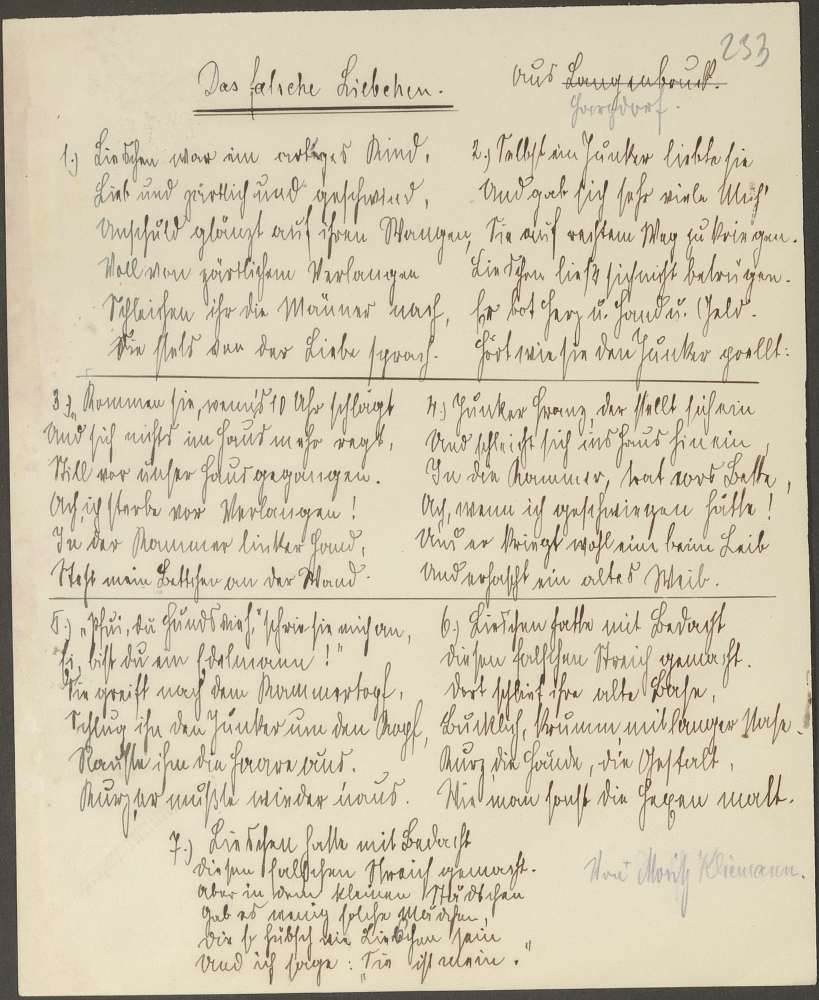 233
Das falsche Liebchen.
Aus Langenbruck.
Harzdorf.
1.) Lieschen war ein artiges Kind,
Lieb und zärtlich und geschwind,
Unschuld glänzt auf ihren Wangen,
Voll von zärtlichem Verlangen
Schleichen ihr die Männer nach,
Die stets von der Liebe sprach.
2.) Selbst ein Junker liebte sie
Und gab sich sehr viele Müh'
Sie auf rechtem Weg zu kriegen.
Lieschen ließ sich nicht betrügen.
Er bot Herz u. Hand u. Geld.
Hört wie sie den Junker prellt:
3.) „Kommen sie, wenn's 10 Uhr schlägt
Und sich nichts im Haus mehr regt,
Still vor unser Haus gegangen.
Ach, ich sterbe vor Verlangen!
In der Kammer linker Hand,
Steht mein Bettchen an der Wand.
4.) Junker Franz, der stellt sich ein
Und schleicht sich ins Haus hinein,
In die Kammer, trat vors Bette,
Ach, wenn ich geschwiegen hätte!
Und er kriegt wohl eine beim Leib
Und erhascht ein altes Weib.
5.) „Pfui, du Hundsvieh," schrie sie mich an,
Ei, bist du ein Edelmann!"
Sie greift nach dem Kammertopf,
Schlug ihn den Junker um den Kopf,
Raufte ihm die Haare aus.
Kurz, er mußte wieder naus.
6.) Lieschen hatte mit Bedacht
Diesen falschen Streich gemacht.
Dort schlief ihre alte Base,
Bucklich, krumm mit langer Nase.
Kurz die Hände, die Gestalt,
Wie man sonst die Hexen malt.
7.) Lieschen hatte mit Bedacht
Diesen falschen Streich gemacht.
Aber in dem kleinen Städtchen
Gab es wenig solche Mädchen,
Die so hübsch wie Liebchen sein
Und ich sage: „Sie ist mein."
Von Moritz Kliemann.